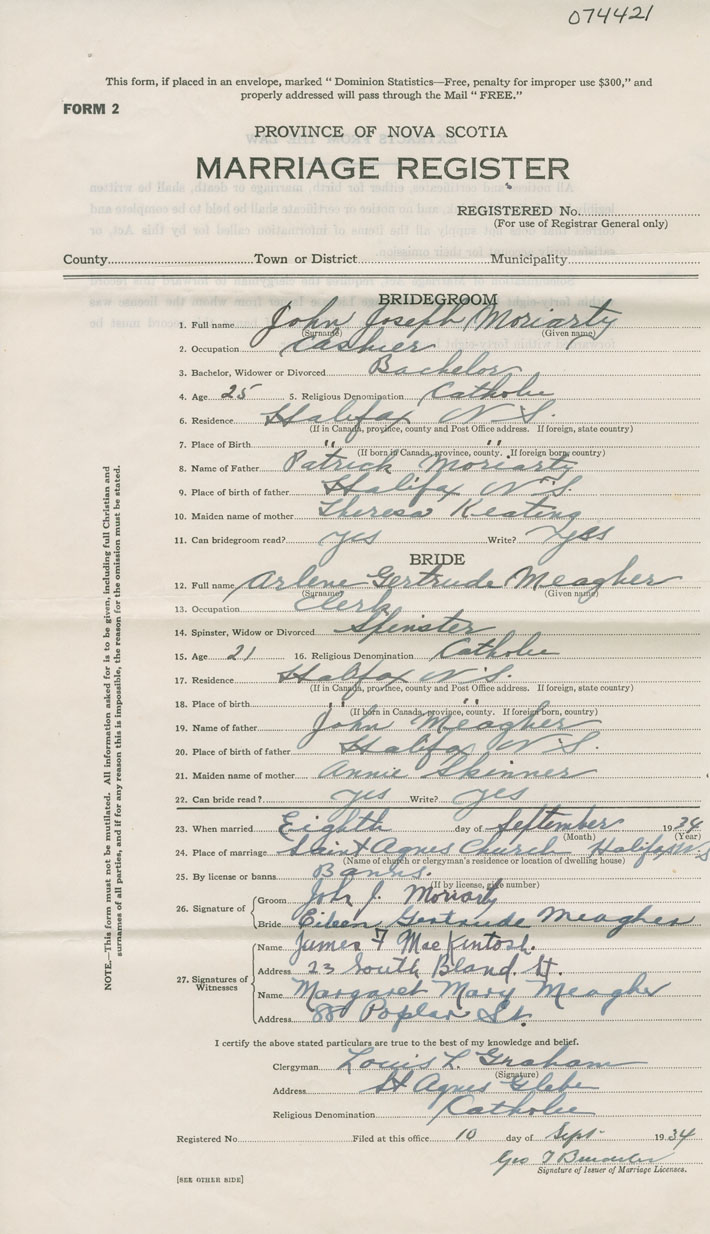 074421
This form, if placed in an envelope, marked " Dominion Statistics—Free, penalty for improper use $300," and
properly addressed will pass through the Mail " FREE."
FORM 2
PROVINCE OF NOVA SCOTIA
MARRIAGE REGISTER
REGISTERED No.
(For use of Registrar General only)
County Town or District Municipality
BRIDEGROOM
1. Full name John Joseph Moriarty
(Surname) (Given name)
2. Occupation Cashier
3. Bachelor, Widower or Divorced Bachelor
4. Age 25 5. Religious Denomination Catholic
6. Residence Halifax N.S.
(If in Canada, province, county and Post Office address. If foreign, state country)
7. Place of Birth " "
(If born in Canada, province, county. If foreign born, country)
8. Name of Father Patrick Moriarty
9. Place of birth of father Halifax N.S.
10. Maiden name of mother Theresa Keating
11. Can bridegroom read? yes Write? yes
BRIDE
12. Full name Arlene Gertrude Meagher
(Surname) (Given name)
13. Occupation Clerk
14. Spinster, Widow or Divorced Spinster
15. Age 21 16. Religious Denomination Catholic
17. Residence Halifax N.S.
(If in Canada, province, county and Post Office address. If foreign, state country)
18. Place of birth " "
(If born in Canada, province, county. If foreign born, country)
19. Name of father John Meagher
20. Place of birth of father Halifax N.S.
21. Maiden name of mother Annie Skinner
22. Can bride read? yes Write? yes
23. When married Eighth day of September 1934
(Month) (Year)
24. Place of marriage Saint Agnes Church Halifax N.S
(Name of church or clergyman's residence or location of dwelling house)
25. By license or banns Banns.
(If by license, give number)
26. Signature of Groom John J. Moriarty
Bride Eileen Gertrude Meagher
27. Signatures of Witnesses
Name James F MacKintosh.
Address 23 South Bland. St.
Name Margaret Mary Meagher
Address Poplar St.
I certify the above stated particulars are true to the best of my knowledge and belief.
Clergyman Louis L. Graham
(Signature)
Address St Agnes Glebe
Religious Denomination Catholic
Registered No. Filed at this office 10 day of Sept 1934
Geo T
Signature of Issuer of Marriage Licenses.
[SEE OTHER SIDE]
NOTE.—This form must not be mutilated. All information asked for is to be given, including full Christian and
surnames of all parties, and if for any reason this is impossible, the reason for the omission must be stated.